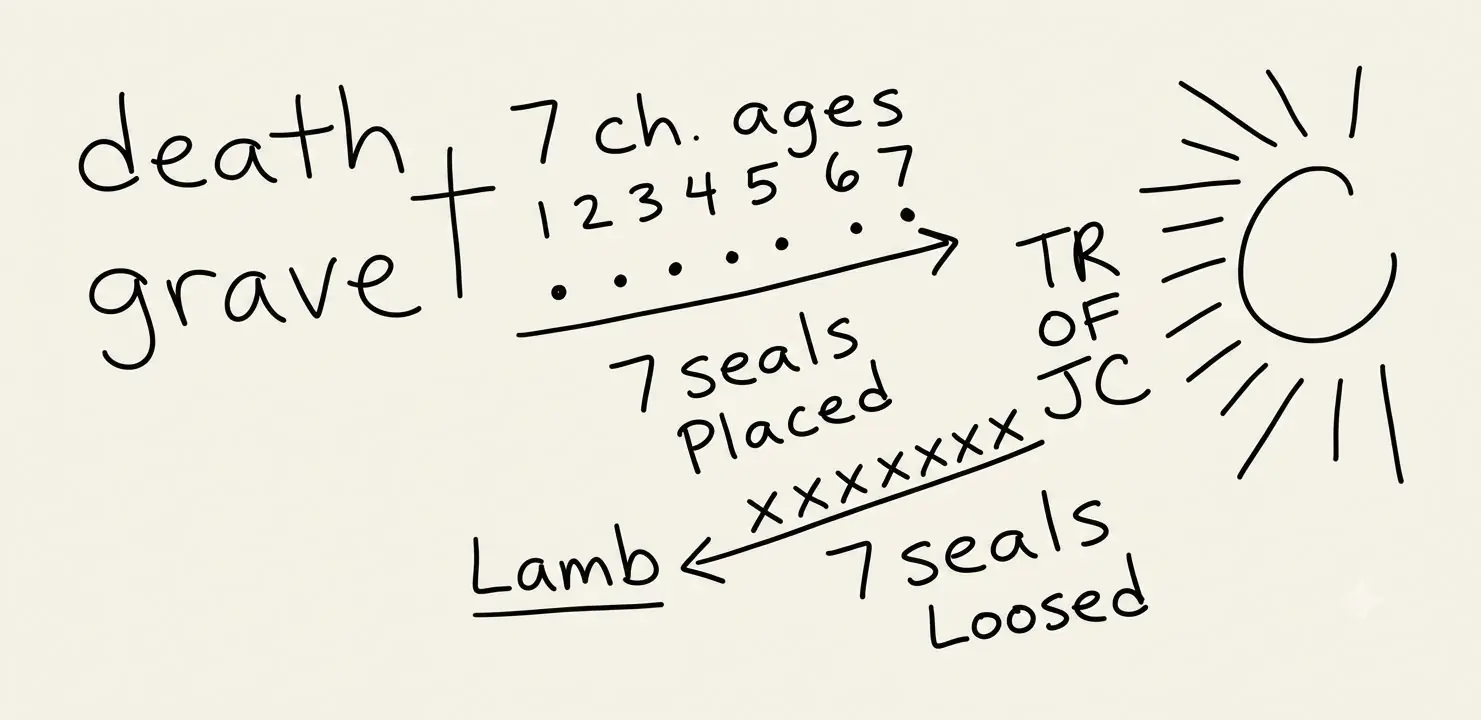 death
grave
7 ch. ages
1 2 3 4 5 6 7
7 seals
Placed
TR
OF
JC
xxxxxxx
Lamb
7 seals
Loosed